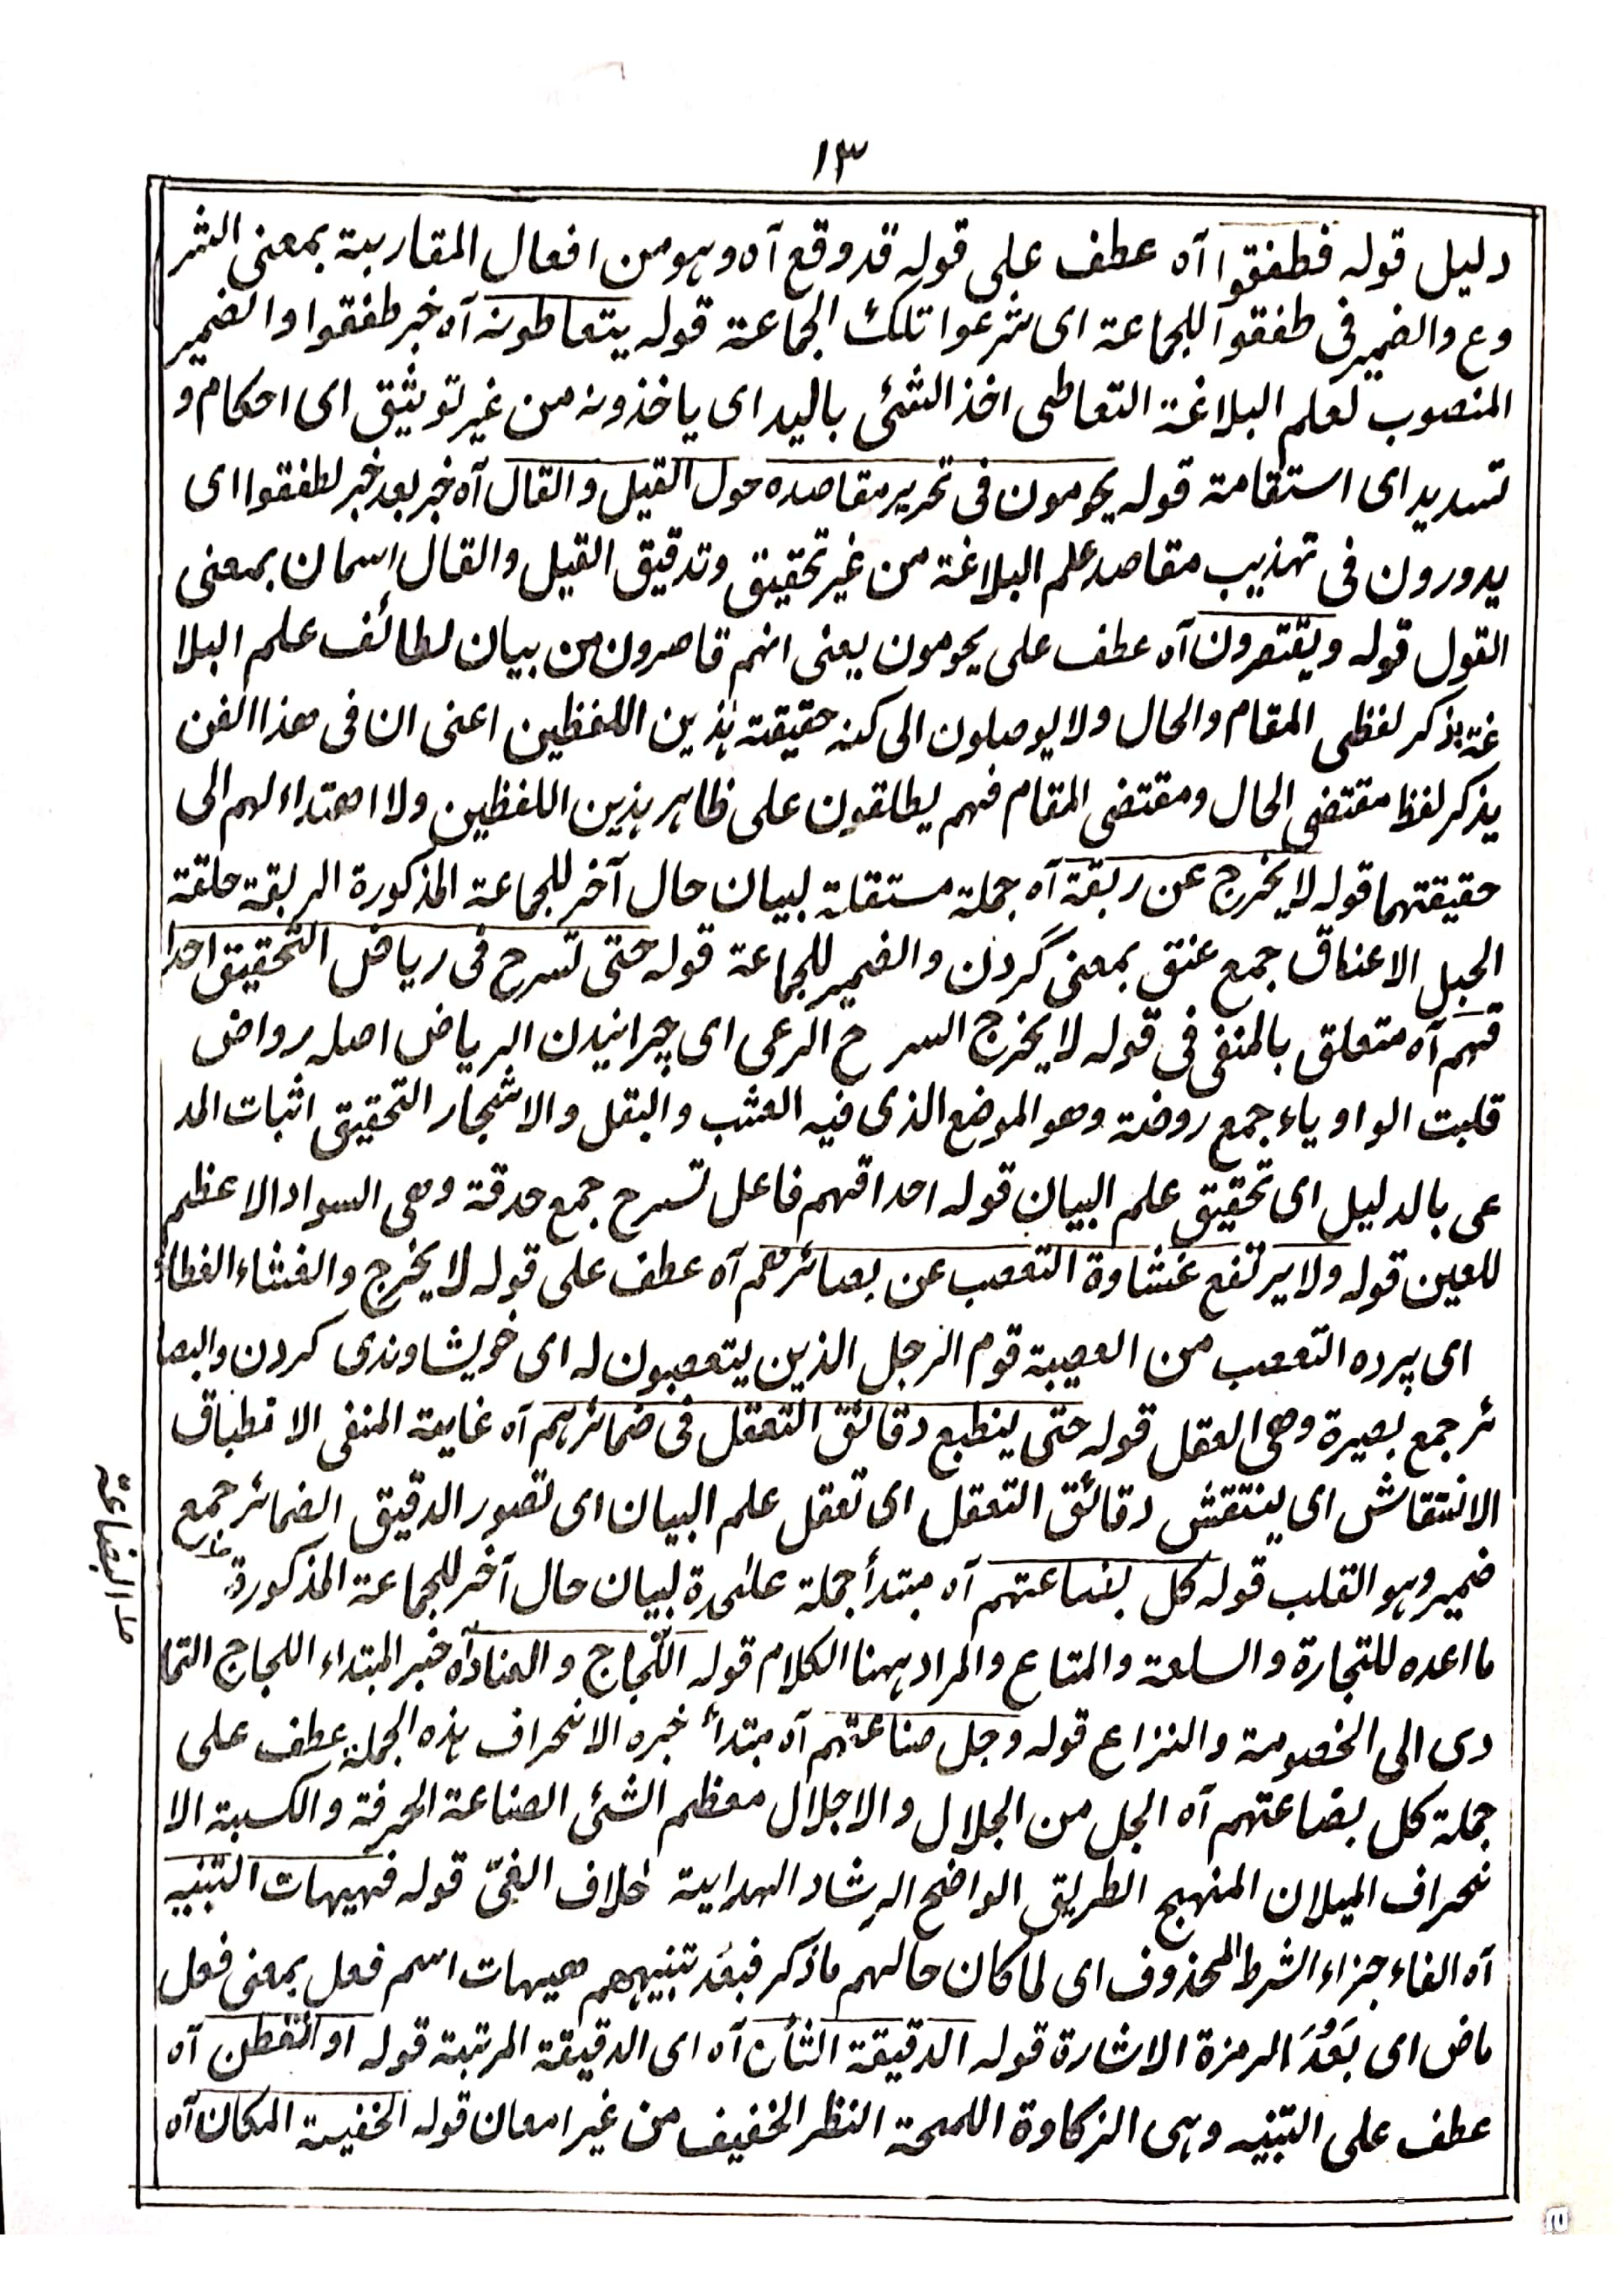 ١٣
دليل قوله فطفقوا آه عطف على قوله قد وقع آه وهو من افعال المقاربة بمعنى الشر
وع والضمير فى طفقوا للجماعة اى شرعوا تلك الجماعة قوله يتعاطونه آه خبر طفقوا والضمير
المنصوب لعلم البلاغة التعاطى اخذ الشئى باليد اى ياخذونه من غير توثيق اى احكام و
تسديد اى استقامة قوله يحومون فى تحرير مقاصده حول القيل والقال آه خبر بعد خبر لطفقوا اى
يدورون فى تهذيب مقاصد علم البلاغة من غير تحقيق وتدقيق القيل والقال اسمان بمعنى
القول قوله ويقتصرون آه عطف على يحومون يعنى انهم قاصرون من بيان لطائف علم البلا
غة بذكر لفظى المقام والحال ولا يوصلون الى كنه حقيقة هذين اللفظين اعنى ان فى هذا الفن
يذكر لفظ مقتضى الحال ومقتضى المقام فهم يطلقون على ظاهر هذين اللفظين ولا اهتداء لهم الى
حقيقتهما قوله لا يخرج عن ربقة آه جملة مستقلة لبيان حال آخر للجماعة المذكورة الربقة حلقة
الحبل الاعناق جمع عنق بمعنى گردن والضمير للجماعة قوله حتى تسرح فى رياض التحقيق احدا
قهم آه متعلق بالمنفى فى قوله لا يخرج السرح الرعى اى چرانيدن الرياض اصله رواض
قلبت الواو ياء جمع روضة وهو الموضع الذى فيه العشب والبقل والاشجار التحقيق اثبات المد
عى بالدليل اى تحقيق علم البيان قوله احداقهم فاعل تسرح جمع حدقة وهى السواد الاعظم
للعين قوله ولا يرتفع غشاوة التعصب عن بصائرهم آه عطف على قوله لا يخرج والغشاء الغطاء
اى پرده التعصب من العصبية قوم الرجل الذين يتعصبون له اى خويشاوندى كردن والبصا
ئر جمع بصيرة وهى العقل قوله حتى ينطبع دقائق التعقل فى ضمائرهم آه غاية المنفى الانطباق
الانتقاش اى ينتقش دقائق التعقل اى تعقل علم البيان اى تصور الدقيق الضمائر جمع
ضمير وهو القلب قوله كل بضاعتهم آه مبتدأ جملة علٰحدة لبيان حال آخر للجماعة المذكورة
ما اعده للتجارة والسلعة والمتاع والمراد ههنا الكلام قوله اللجاج والعناد آه خبر المبتداء اللجاج التما
دى الى الخصومة والنزاع قوله وجل صناعتهم آه مبتدأ خبره الانحراف هذه الجملة عطف على
جملة كل بضاعتهم آه الجل من الجلال والاجلال معظم الشئى الصناعة الحرفة والكسبة الا
نحراف الميلان المنهج الطريق الواضح الرشاد الهداية خلاف الغىّ قوله فهيهات التنبيه
آه الفاء جزاء الشرط المحذوف اى لما كان حالهم ما ذكر فبعُد تنبيههم هيهات اسم فعل بمعنى فعل
ماض اى بَعُدَ الرمزة الاشارة قوله الدقيقة الشأن آه اى الدقيقة المرتبة قوله او التفطن آه
عطف على التنبيه وهى الزكاوة اللمحة النظر الخفيف من غير امعان قوله الخفيية المكان آه
البضاعة